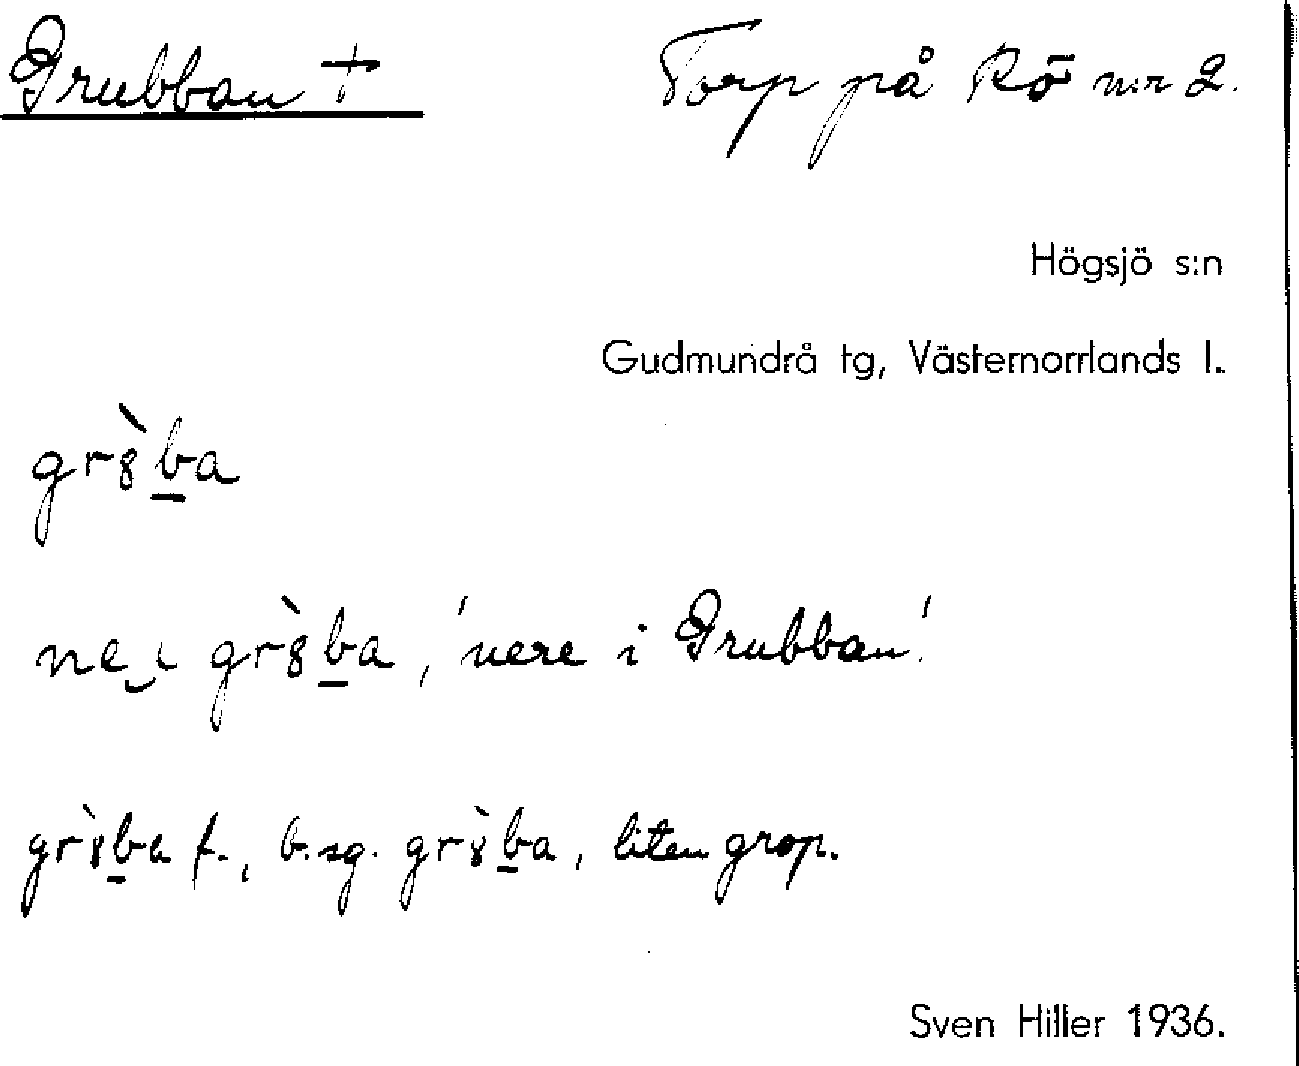 Grubban + Torp på Rö n:r 2.
Högsjö s:n
Gudmundrå tg, Västernorrlands l.
gr8̀b̲a
gr8̀b̲a, 'nere i Grubban'.
gr8̀b̲a f., b. sg. gr8̀b̲a, liten grop.
Sven Hiller 1936.